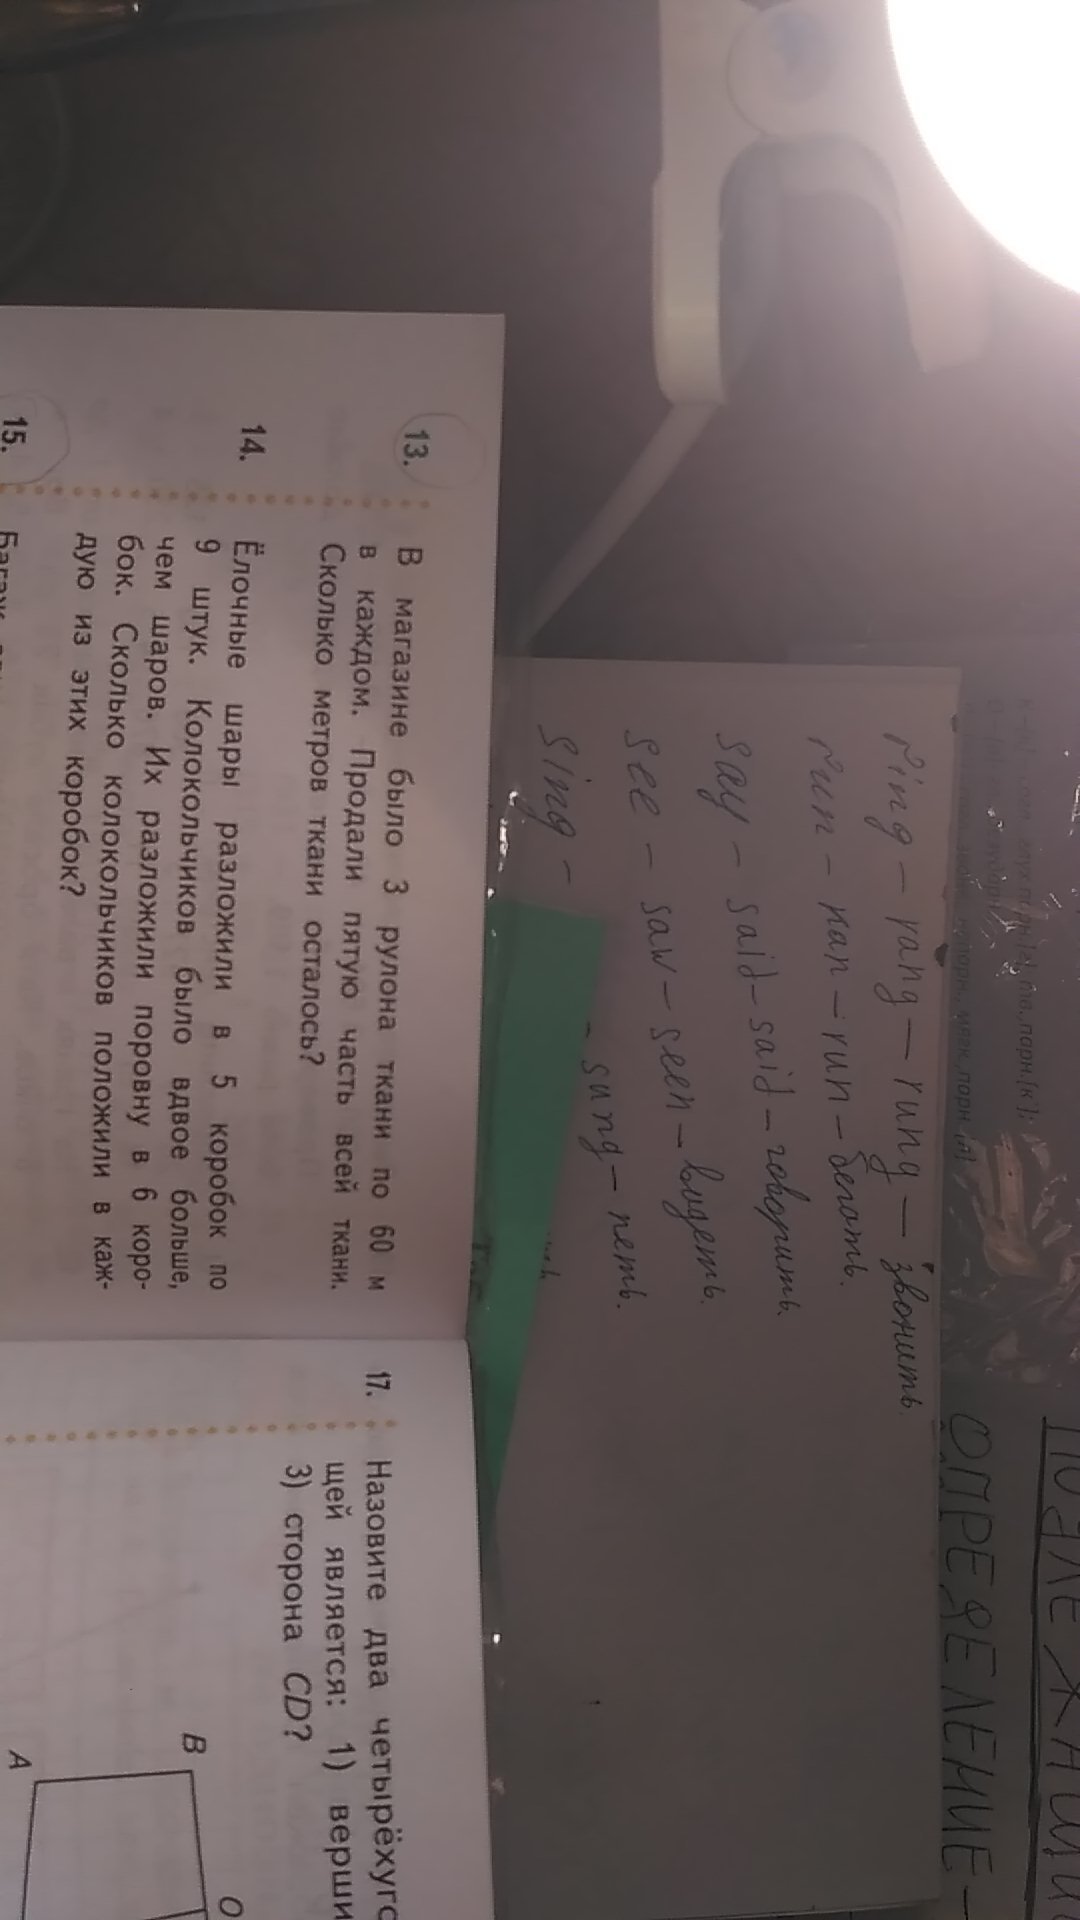 ring – rang – rung – звонить.
run – ran – run – бегать.
say – said – said – говорить.
see – saw – seen – видеть.
sing – – sung – петь.
ОПРЕДЕЛЕНИЕ –
13. В магазине было 3 рулона ткани по 60 м
в каждом. Продали пятую часть всей ткани.
Сколько метров ткани осталось?
14. Ёлочные шары разложили в 5 коробок по
9 штук. Колокольчиков было вдвое больше,
чем шаров. Их разложили поровну в 6 коро-
бок. Сколько колокольчиков положили в каж-
дую из этих коробок?
15.
17. Назовите два четырёхуго
щей является: 1) верши
3) сторона CD?
B
O
A